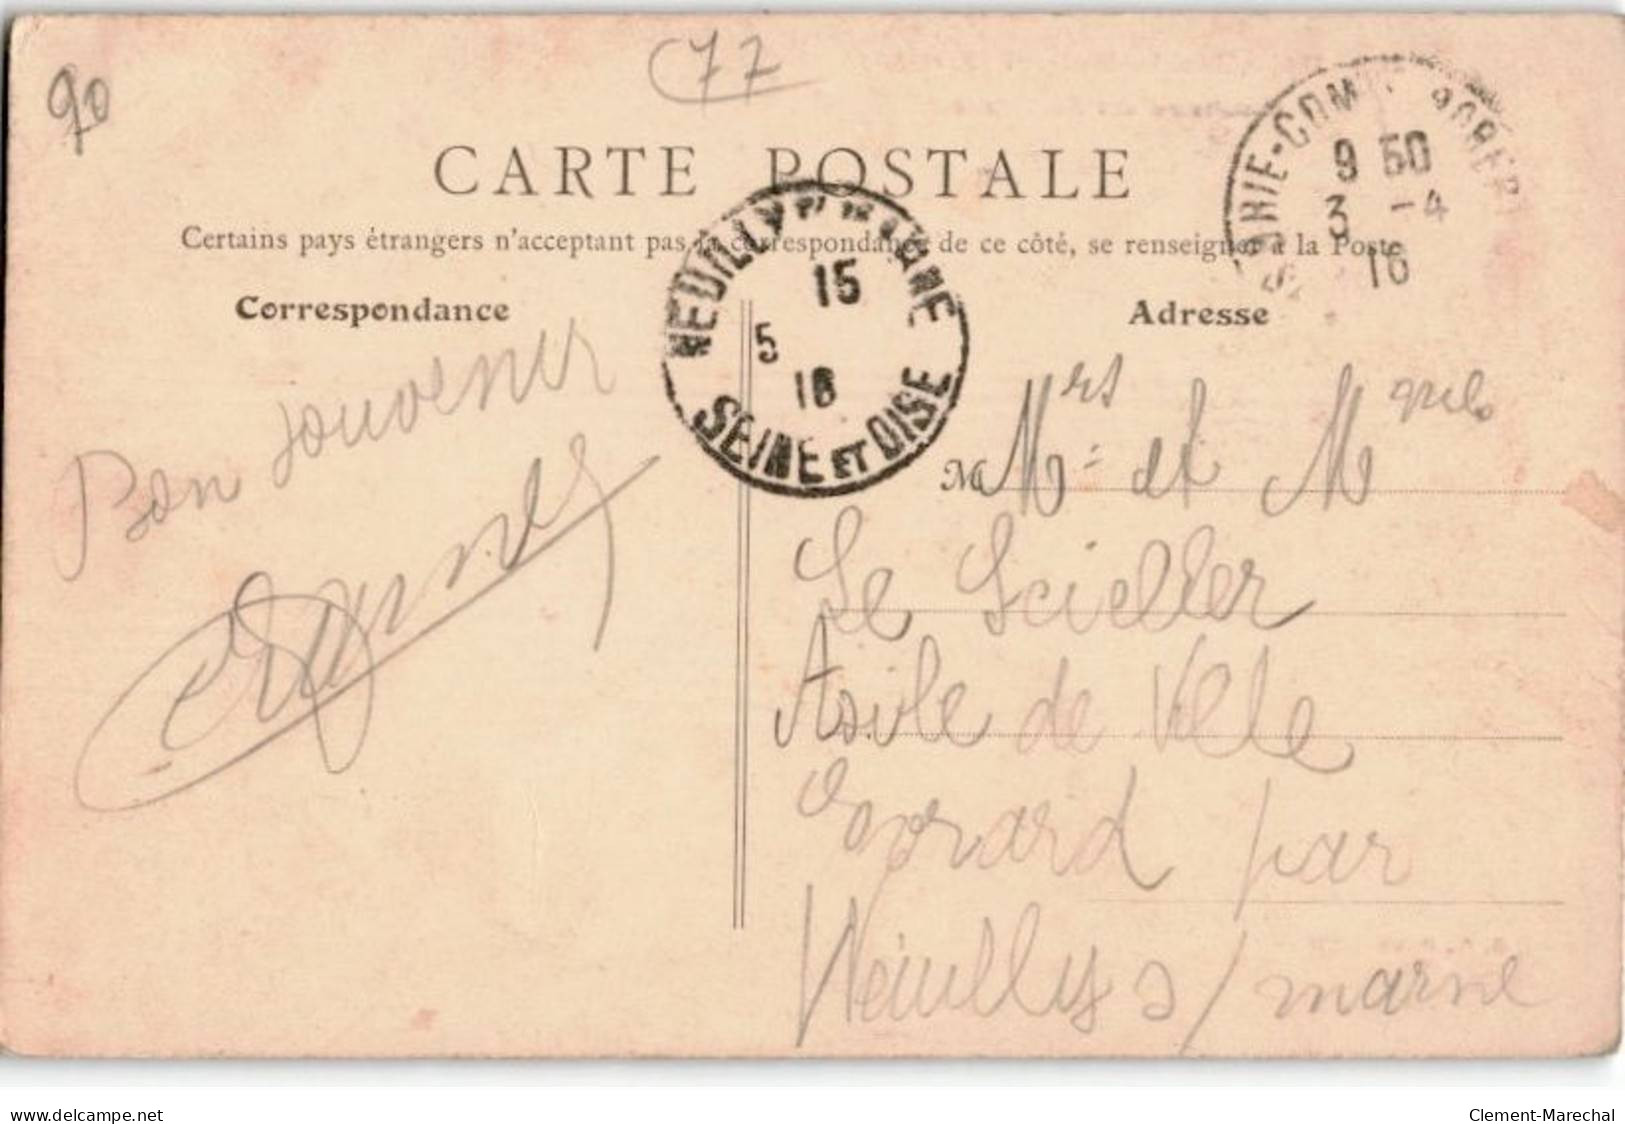 90
77
CARTE POSTALE
Certains pays étrangers n'acceptent pas la correspondance de ce côté, se renseigner à la Poste
BRIE-COM ROBERT
9 50
3 -4
16
NEUILLY S/ MARNE
15
5
16
SEINE ET OISE
Correspondance
Adresse
Bon souvenir
M Mrs Me et Mquiles
Le Scieller
Asile de Ville
Evrard par
Neuilly s/marne
www.delcampe.net
Clement-Marechal